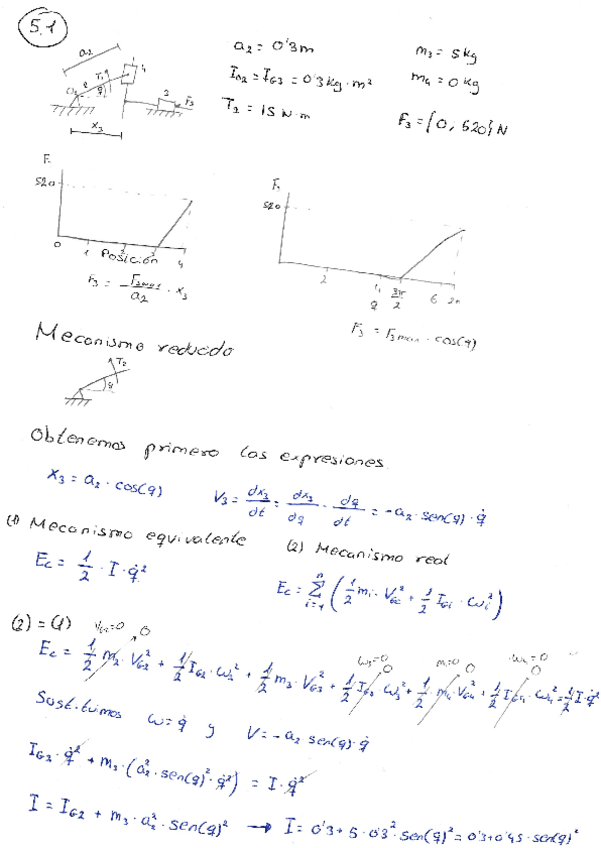 5.1
a₂ = 0'3m
m₃ = 5 kg
I_G2 = I_G3 = 0'3 kg · m²
m₄ = 0 kg
T₂ = 15 N·m
F₃ = {0, 520} N
a₂
4
O₂
2
T₂
q
3
F₃
x₃
F.
520
0
1
Posición
4
F₃ = - F₃max / a₂ · x₃
F.
520
2
4
q
3π/2
6
2π
F₃ = F₃max · cos(q)
Mecanismo reducido
T₂
q
Obtenemos primero las expresiones
x₃ = a₂ · cos(q)
V₃ = dx₃/dt = dx₃/dq · dq/dt = -a₂ · sen(q) · q̇
(1) Mecanismo equivalente
(2) Mecanismo real
Ec = 1/2 · I · q̇²
Ec = Σ i=1 n (1/2 mᵢ · V_Gi² + 1/2 I_Gi · ωᵢ²)
(2) = (1)
V_G2 = 0
0
ω₃ = 0
0
m₄ = 0
0
ω₄ = 0
0
Ec = 1/2 m₂ · V_G2² + 1/2 I_G2 · ω₂² + 1/2 m₃ · V_G3² + 1/2 I_G3 · ω₃² + 1/2 m₄ · V_G4² + 1/2 I_G4 · ω₄² = 1/2 I · q̇²
Sustituimos ω = q̇ y V = -a₂ sen(q) · q̇
I_G2 · q̇² + m₃ · (a₂² · sen(q)² · q̇²) = I · q̇²
I = I_G2 + m₃ · a₂² · sen(q)² → I = 0'3 + 5 · 0'3² · sen(q)² = 0'3 + 0'45 · sen(q)²